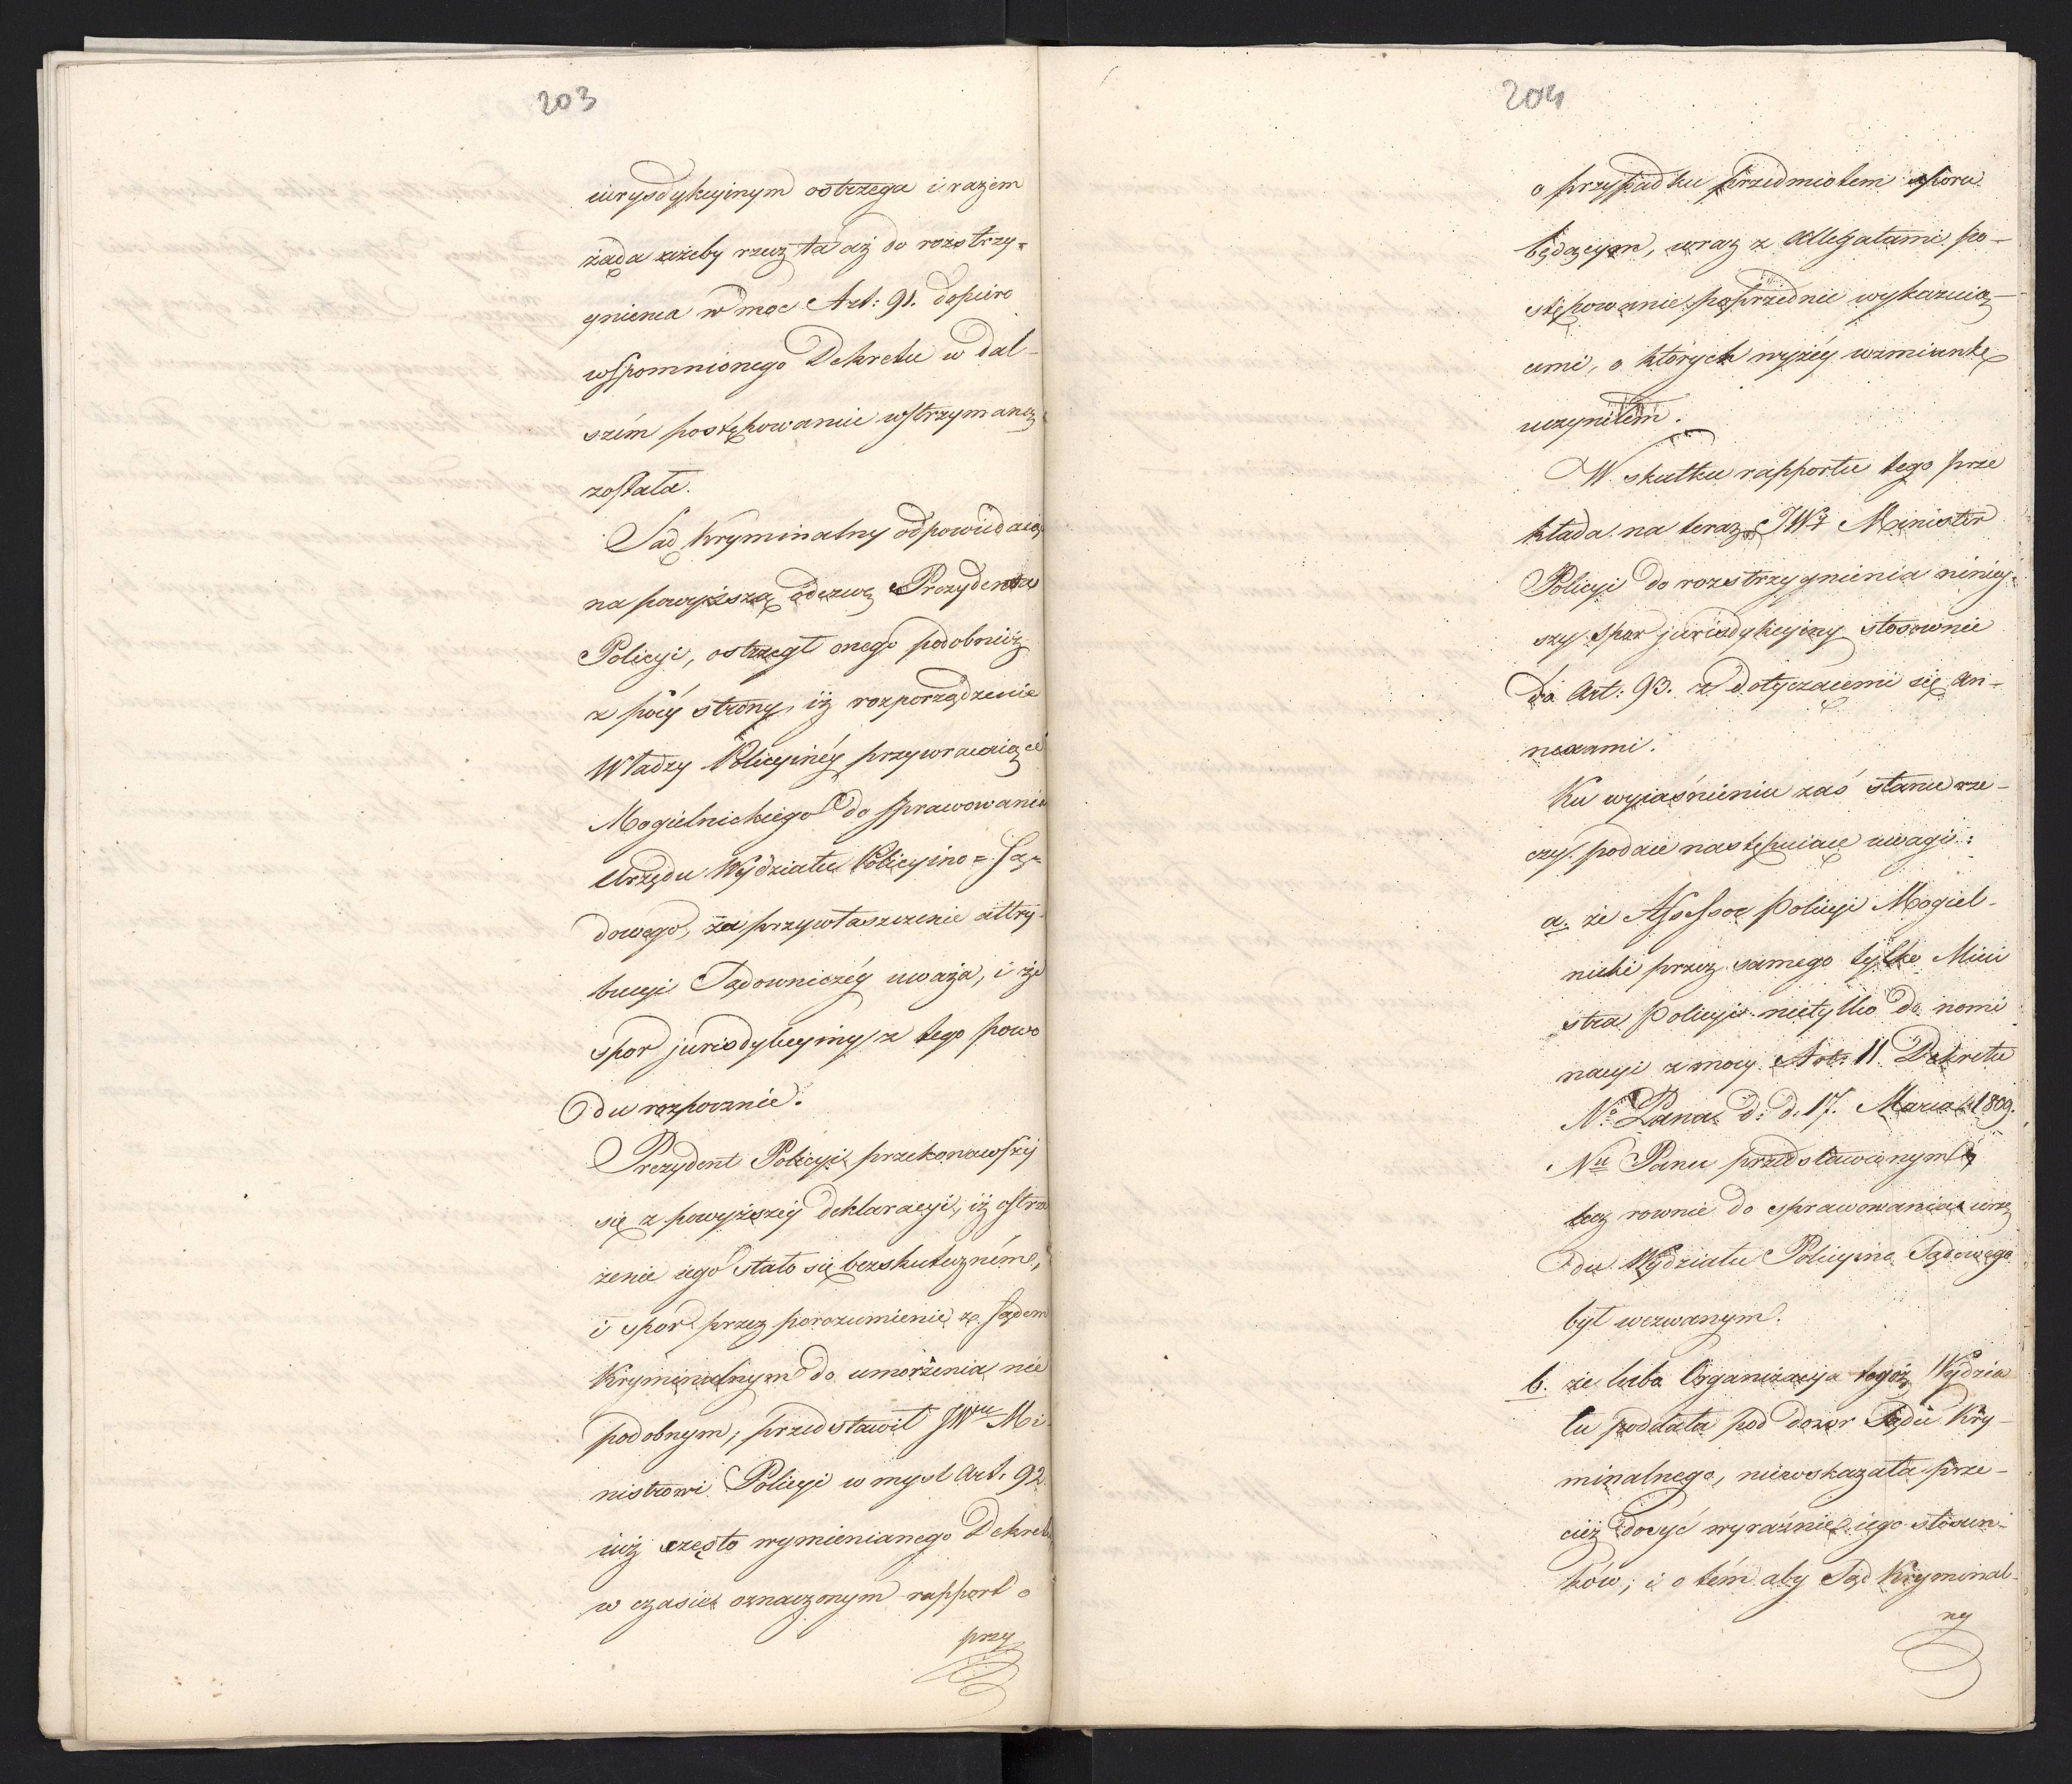 203
iurysdykcyinym ostrzega i razem
żąda ażeby rzecz ta aż do rozstrzy=
gnienia w moc Art: 91. dopiero
wspomnionego Dekretu w dal-
szém postępowanie wstrzymaną
została.
Sąd Kryminalny odpowiedaiąc
na powyższą odezwę Prezydenta
Policyi, ostrzegł onego podobnież
z swéy strony, iż rozporządzenie
Władzy Policyinéy przywracaiące
Mogielnickiego do sprawowania
Urzędu Wydziału Policyino=Są=
dowego, za przywłaszczenie attry-
bucyi Sądowniczéy uważa, i że
spor jurisdykcyiny z tego powo
du rozpocznie.
Prezydent Policyi przekonawszy
się z powyższéy deklaracyi, iż ostrze
żenie iego stało się bezskuteczném,
i spor przez porozumienie z Sądem
Kryminalnym do umorzenia nie
podobnym, przedstawił JWmu Mi-
nistrowi Policyi w mysl Art. 92
iuż często wymienianego Dekretu
w czasie oznaczonym rapport o
przy
204
o przypadku przedmiotem sporu
będącym, wraz z Allegatami po-
stępowanie poprzednie wykazuią-
cemi, o których wyżéy wzmiankę
uczyniłem.
W skutku rapportu tego prze
kłada na teraz JW. Minister
Policyi do rozstrzygnienia niniey-
szy Spor jurisdykcyiny stosownie
do Art: 93. z dotyczącemi się an-
nexami.
Ku wyiaśnieniu zaś stanu rze-
czy podaie następuiące uwagi:
a. że Assessor Policyi Mogiel-
nicki przez samego tylko Mini
stra Policyi nietylko do nomi
nacyi z mocy Art: 11 Dekretu
No Pana d: d. 17. Marca 1809.
Nu Panu przedstawionym
lecz rownie do sprawowania urzę
du Wydziału Policyino Sądowego
był wezwanym.
b. że luba Organizacya tegoż Wydzia
łu poddała pod dozor Sądu Kry-
minalnego, niewskazała prze-
cież dosyć wyraźnie iego stosun-
ków, i o tém aby Sąd Kryminal-
ny